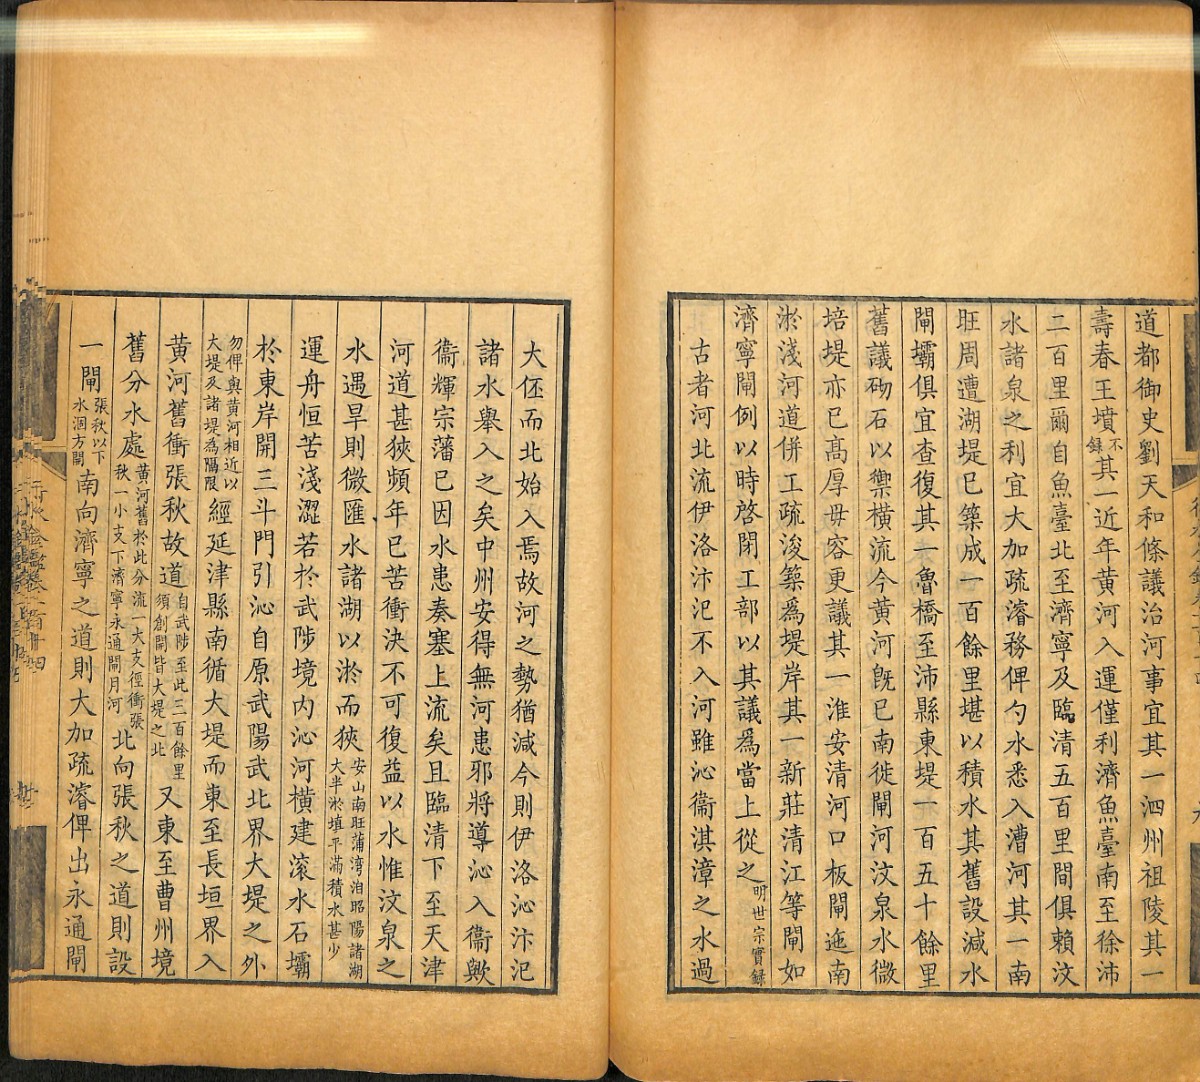 道都御史劉天和條議治河事宜其一泗州祖陵其一
壽春王墳不錄其一近年黃河入運僅利濟魚臺南至徐沛
二百里爾自魚臺北至濟寧及臨清五百里間俱賴汶
水諸泉之利宜大加疏濬務俾勺水悉入漕河其一南
旺周遭湖堤已築成一百餘里堪以積水其舊設減水
閘壩俱宜查復其一魯橋至沛縣東堤一百五十餘里
舊議砌石以禦橫流今黃河旣已南徙閘河汶泉水微
培堤亦已高厚毋容更議其一淮安清河口板閘迤南
淤淺河道併工疏浚築為堤岸其一新莊清江等閘如
濟寧閘例以時啓閉工部以其議為當上從之明世宗實錄
古者河北流伊洛汴汜不入河雖沁衞淇漳之水過
大伾而北始入焉故河之勢猶減今則伊洛沁汴汜
諸水舉入之矣中州安得無河患邪將導沁入衞歟
衞輝宗藩已因水患奏塞上流矣且臨清下至天津
河道甚狹頻年已苦衝決不可復益以水惟汶泉之
水遇旱則微匯水諸湖以淤而狹安山南旺蒲灣泊昭陽諸湖大半淤填平滿積水甚少
運舟恒苦淺澀若於武陟境內沁河橫建滚水石壩
於東岸開三斗門引沁自原武陽武北界大堤之外
勿俾與黃河相近以大堤及諸堤為隔限經延津縣南循大堤而東至長垣界入
黃河舊衝張秋故道自武陟至此三百餘里須創開皆大堤之北又東至曹州境
舊分水處黃河舊於此分流一大支徑衝張秋一小支下濟寧永通閘月河北向張秋之道則設
一閘張秋以下水涸方開南向濟寧之道則大加疏濬俾出永通閘